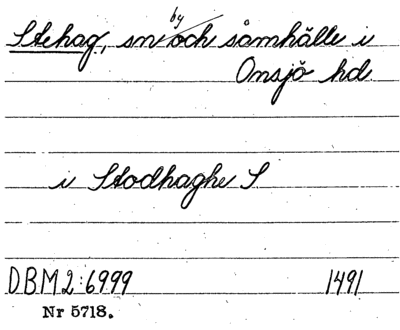 by
Stehag, sn och samhälle i
Onsjö hd.
i Stodhaghe S
DBM2:6999 1491
Nr 5718.